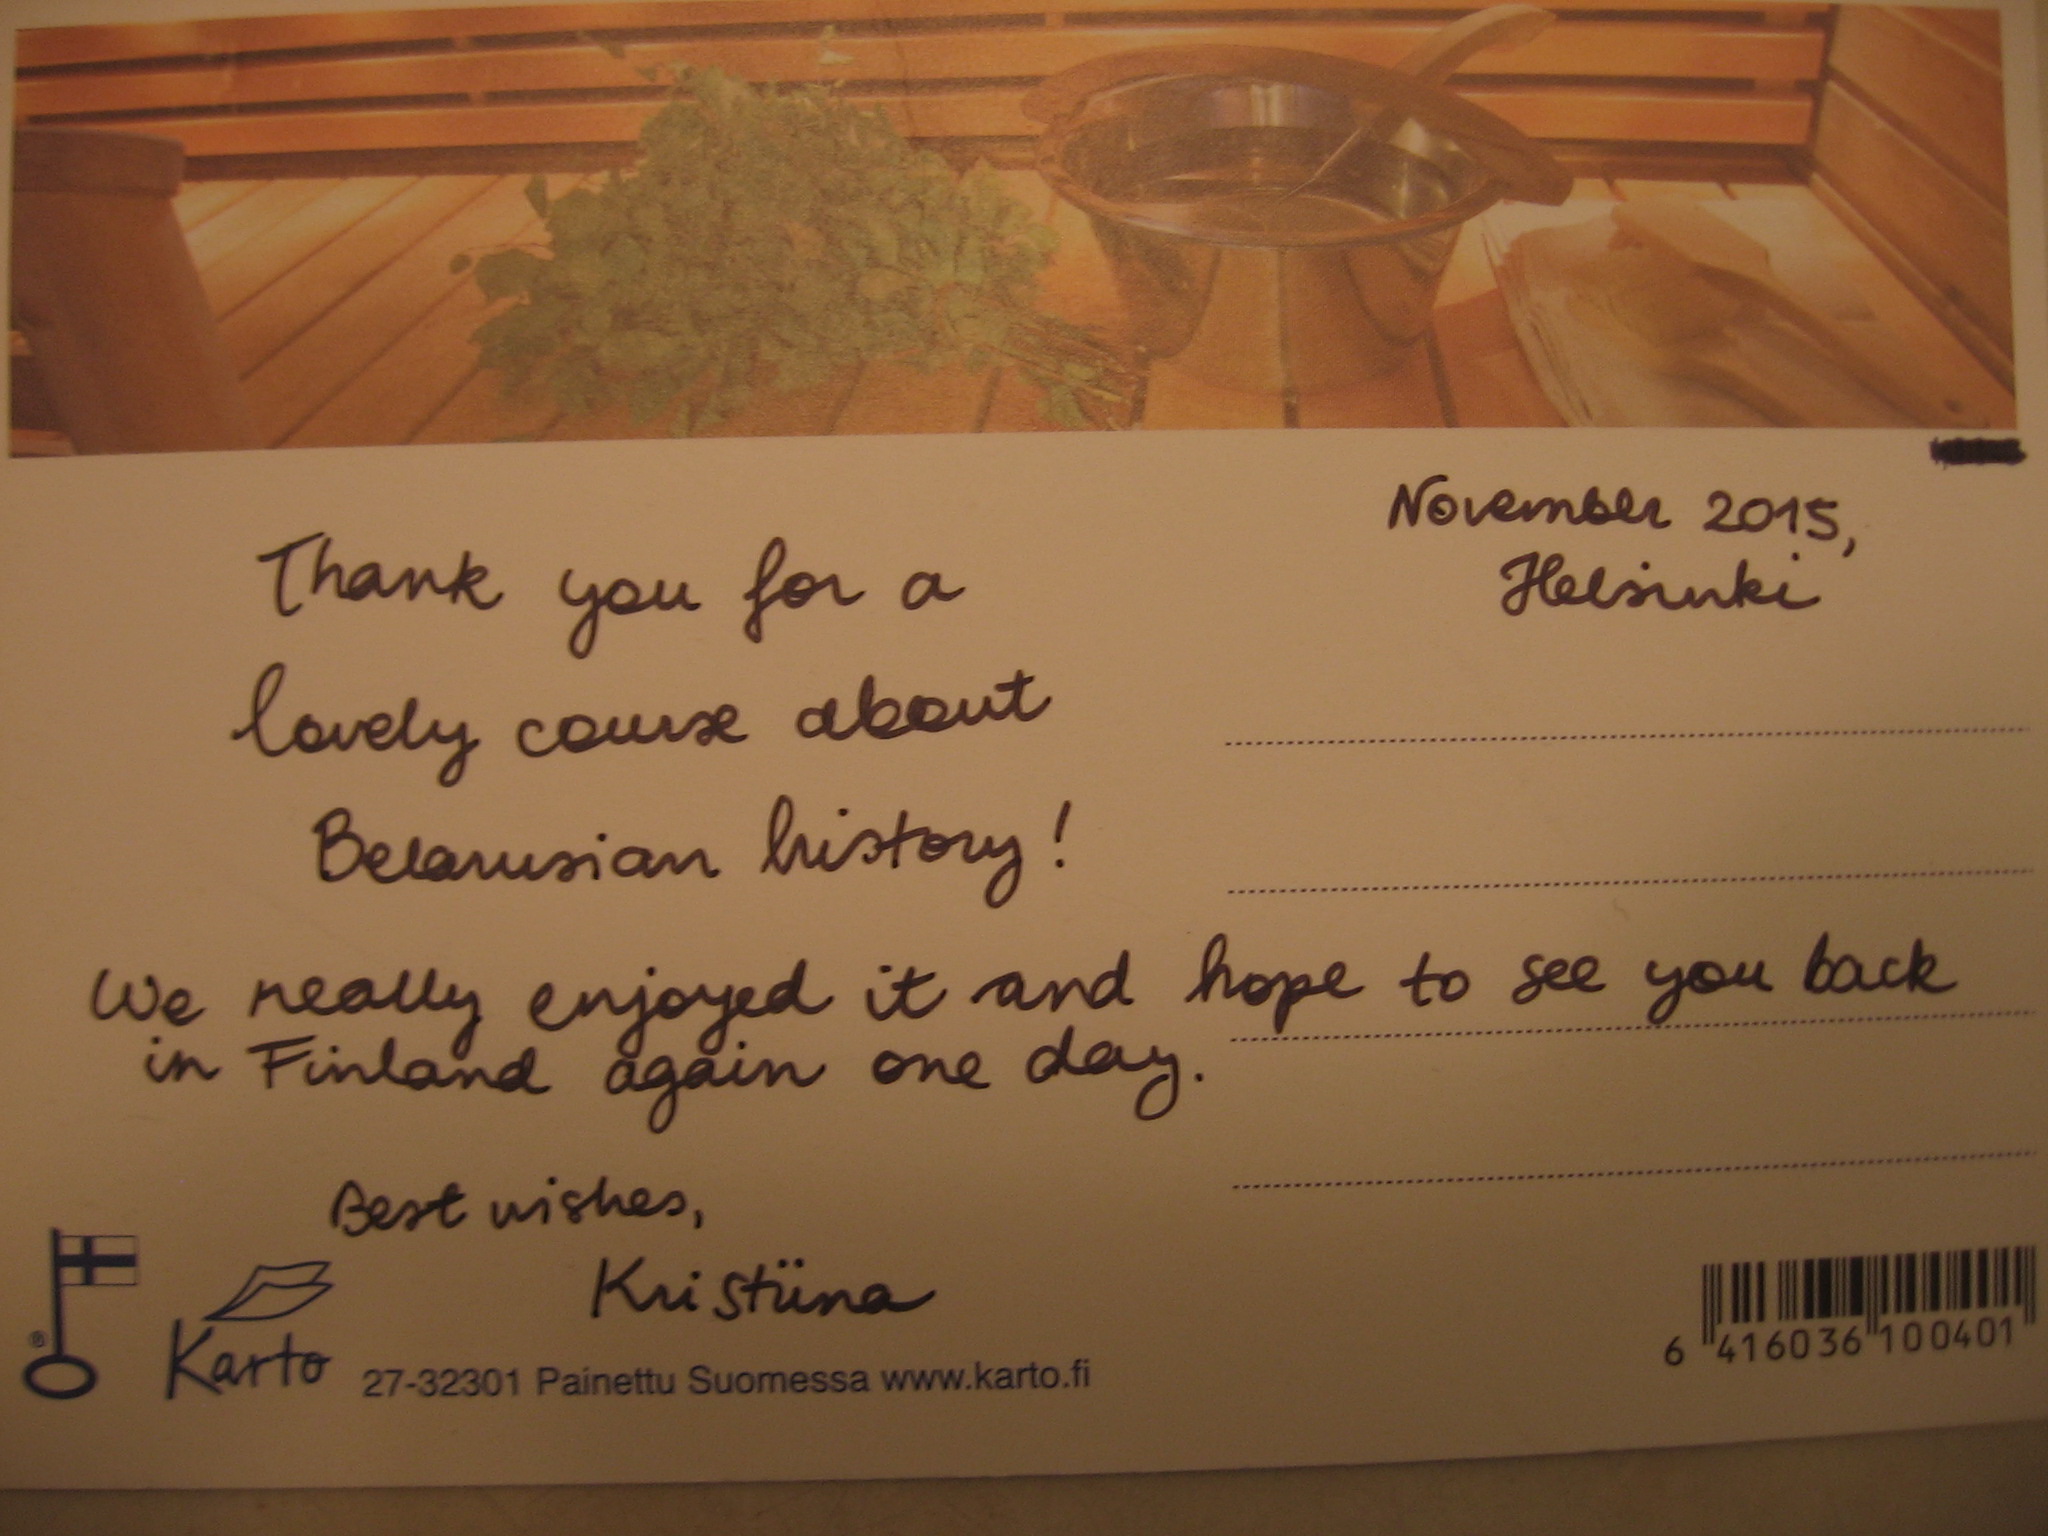 November 2015,
Helsinki
Thank you for a
lovely course about
Belarusian history!
We really enjoyed it and hope to see you back
in Finland again one day.
Best wishes,
Kristiina
® Karto 27-32301 Painettu Suomessa www.karto.fi
6 416036 100401